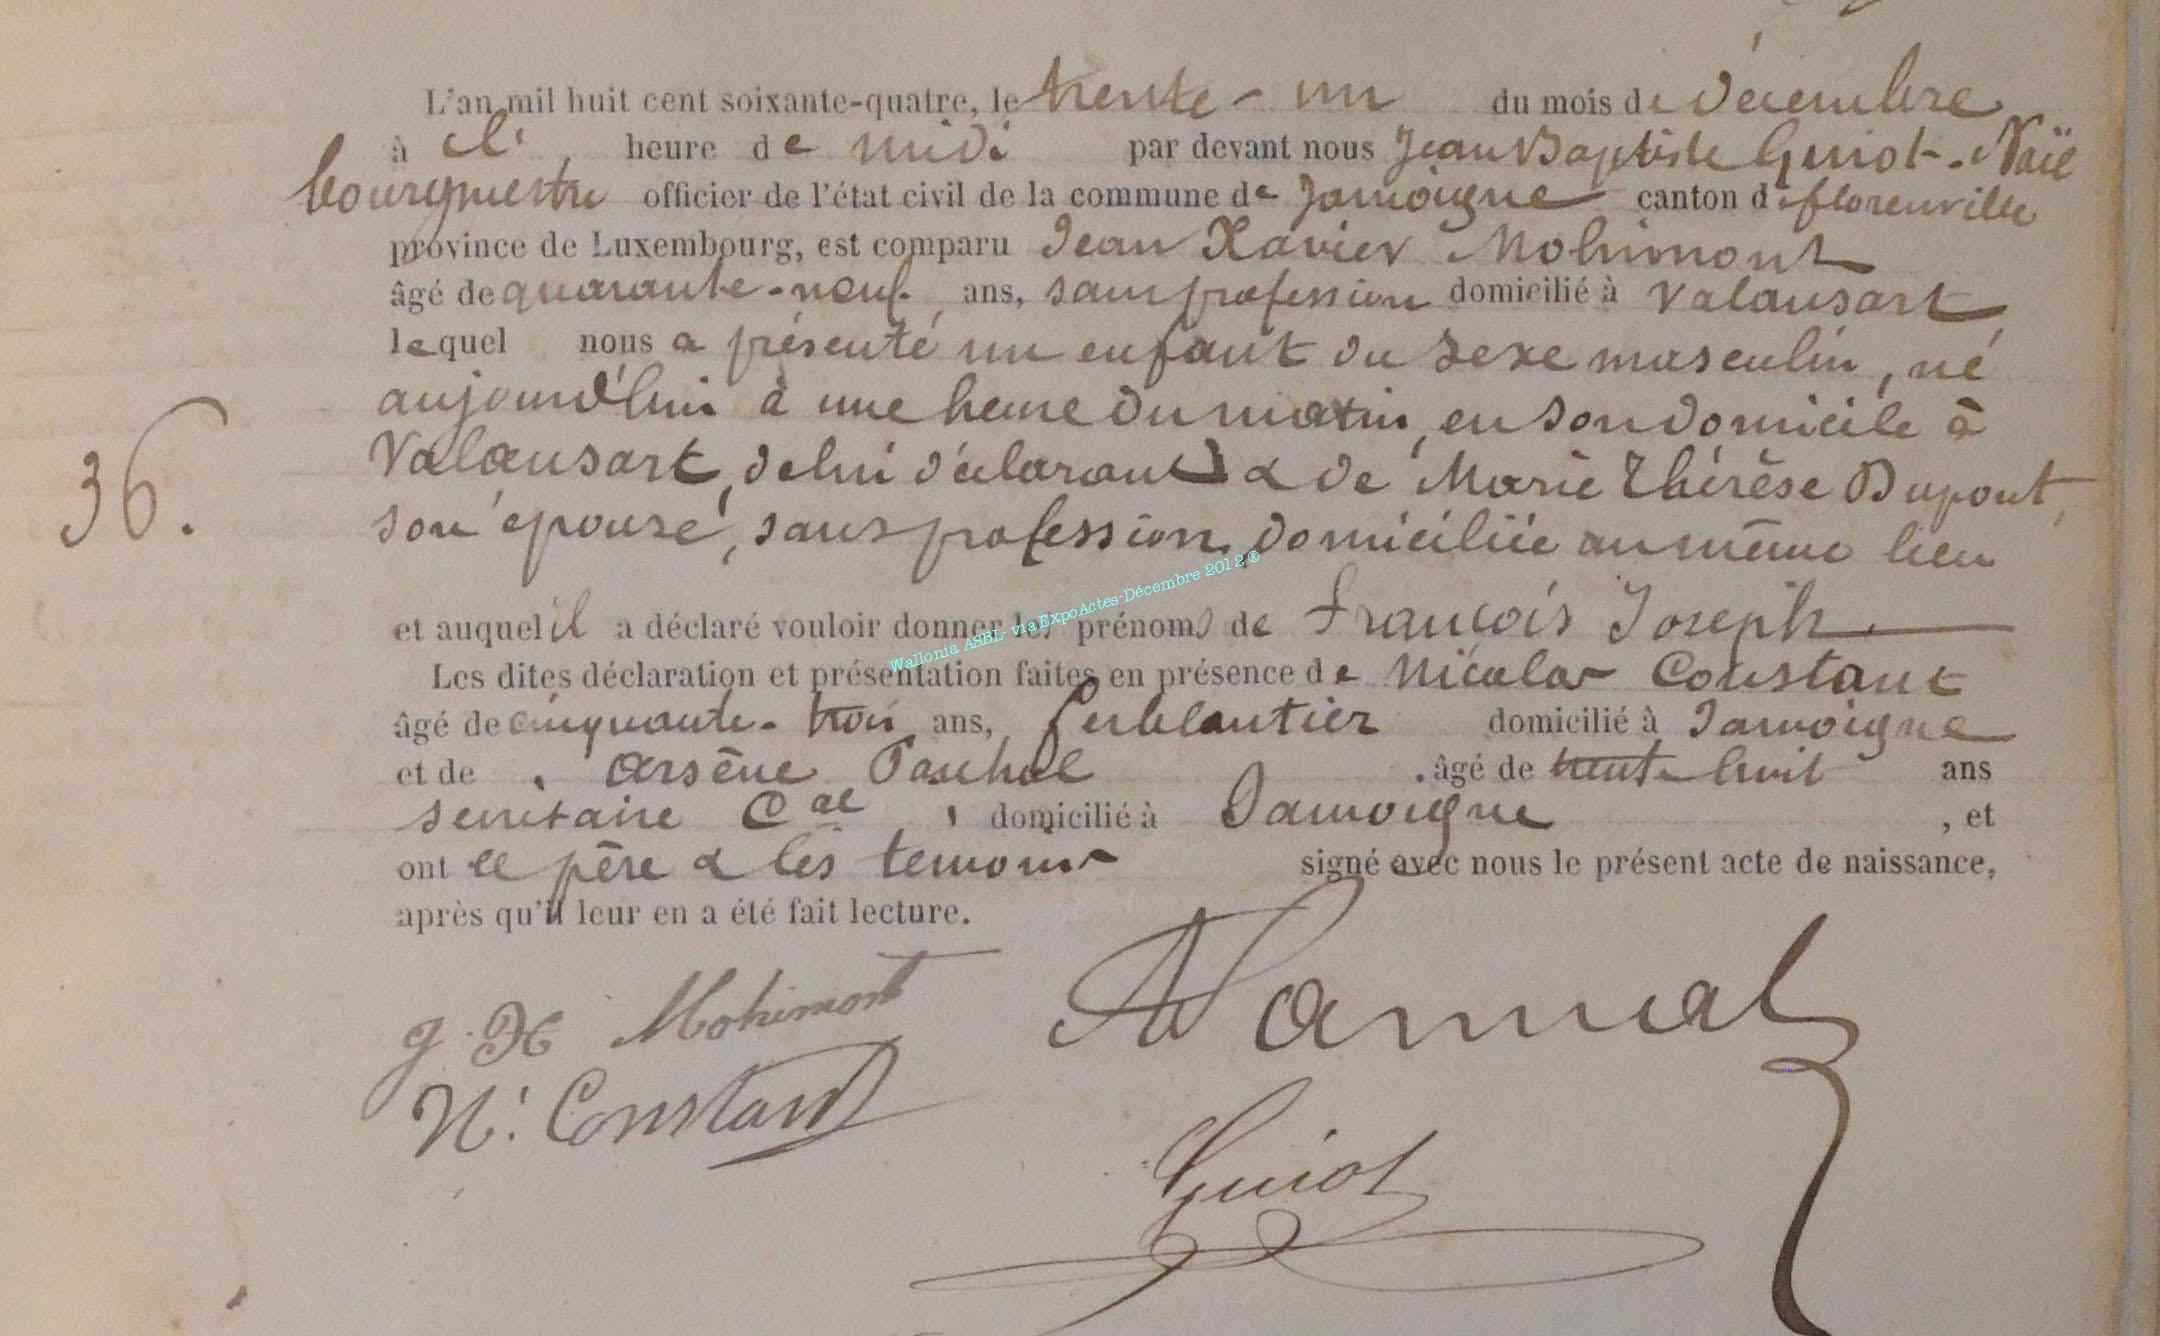 L'an mil huit cent soixante-quatre, le trente-un du mois de décembre
à l' heure de midi par devant nous Jean Baptiste Guiot-Noël
bourgmestre officier de l'état civil de la commune de Jamoigne canton de florenville
province de Luxembourg, est comparu Jean Xavier Mohimont
âgé de quarante-neuf ans, sans profession domicilié à Valansart
lequel nous a présenté un enfant du sexe masculin, né
aujourd'hui à une heure du matin, en son domicile à
Valansart, de lui déclarant & de Marie Thérèse Dupont,
36.
son épouse, sans profession, domiciliée au même lieu
et auquel il a déclaré vouloir donner les prénoms de François Joseph
Les dites déclaration et présentation faites en présence de Nicolas Constant
âgé de cinquante-trois ans, ferblantier domicilié à Jamoigne
et de Arsène âgé de trente huit ans
secrétaire Cal domicilié à Jamoigne, et
ont le père & les témoins signé avec nous le présent acte de naissance,
après qu'il leur en a été fait lecture.
J. X Mohimont
N. Constant
Guiot
Wallonia ASBL- via ExpoActes-Décembre 2012 ®